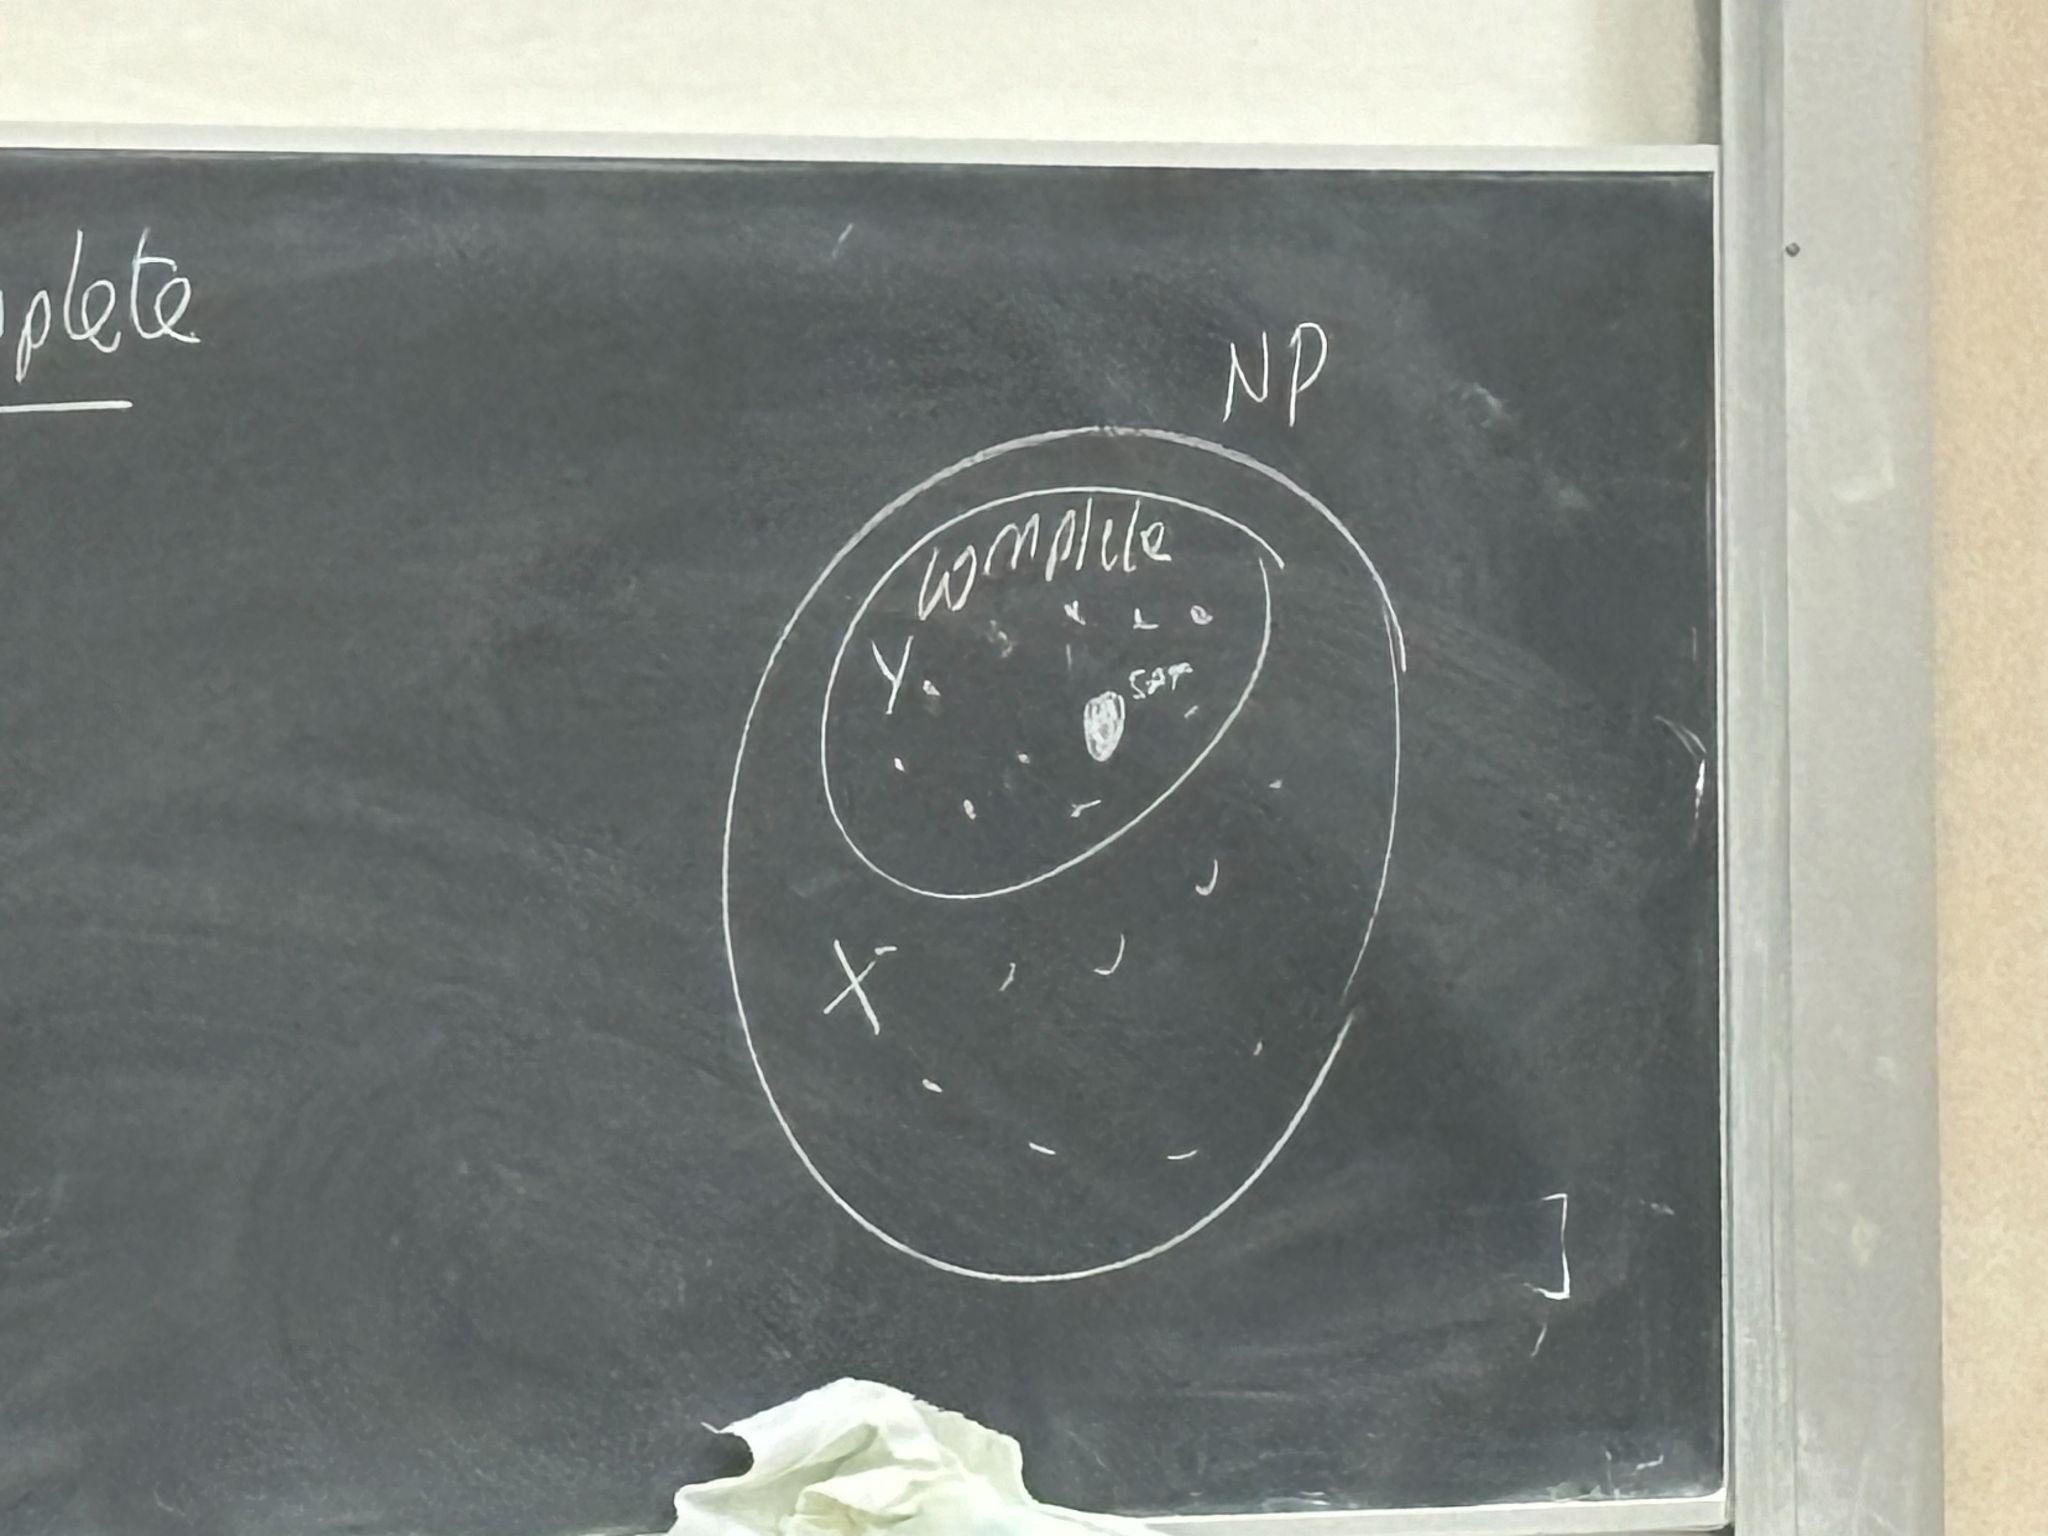 mplete
NP
complete
Y
SAT
X
]